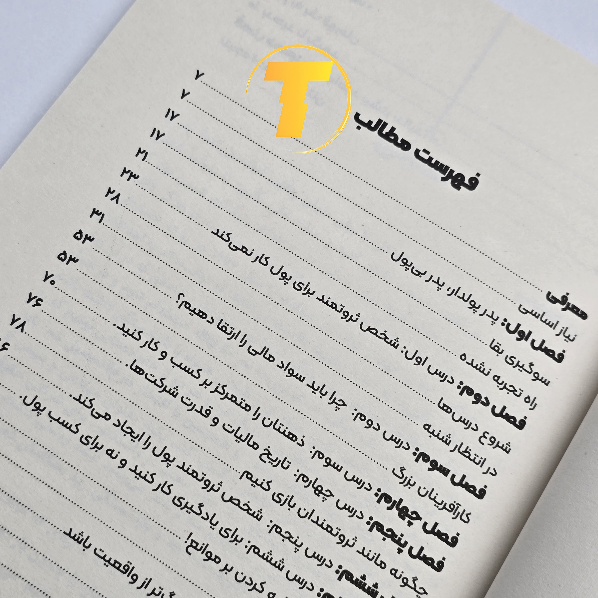 T
فهرست مطالب
معرفی ۷
نیاز اساسی ۷
فصل اول: پدر پولدار، پدر بی‌پول ۱۷
سوگیری بقا ۱۷
راه تجربه نشده ۲۱
فصل دوم: درس اول: شخص ثروتمند برای پول کار نمی‌کند ۲۳
شروع درس‌ها ۲۸
در انتظار شنبه ۳۱
فصل سوم: درس دوم: چرا باید سواد مالی را ارتقا دهیم؟ ۵۳
کارآفرینان بزرگ ۵۳
فصل چهارم: درس سوم: ذهنتان را متمرکز بر کسب و کار کنید. ۷۰
فصل پنجم: درس چهارم: تاریخ مالیات و قدرت شرکت‌ها. ۷۶
چگونه مانند ثروتمندان بازی کنیم ۷۸
ششم: درس پنجم: شخص ثروتمند پول را ایجاد می‌کند.
درس ششم: برای یادگیری کار کنید و نه برای کسب پول.
کردن بر موانع!
از واقعیت باشد